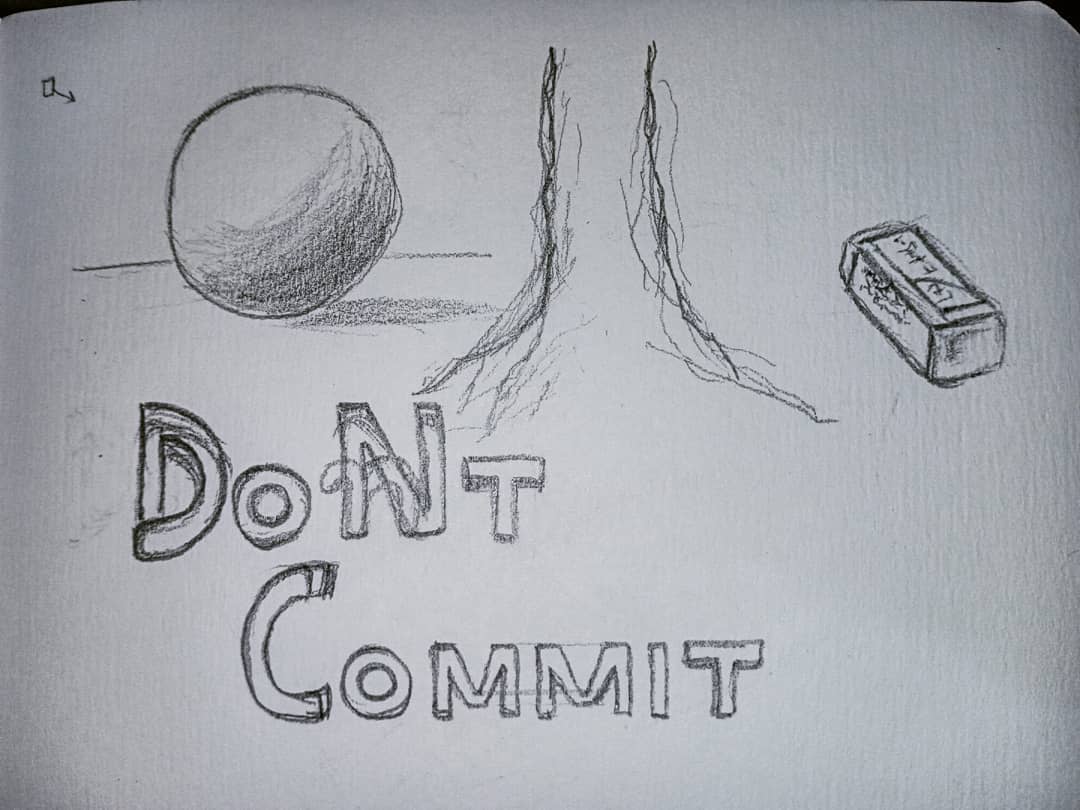 DoNT
COMMIT